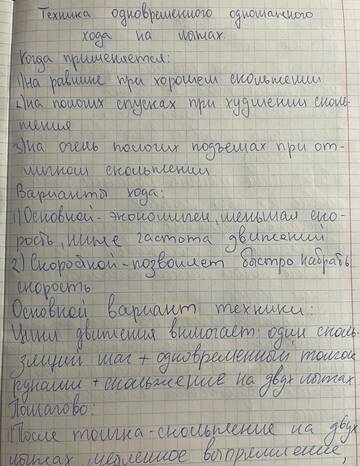 Техника одновременного одношажного
хода на лыжах.
Когда применяется:
1) на равнине при хорошем скольжении
2) на пологих спусках при худшении сколь-
жения
3) на очень пологих подъемах при от-
личном скольжении
Варианты хода:
1) Основной - экономичен, меньшая ско-
рость, ниже частота движений
2) Скоростной - позволяет быстро набрать
скорость
Основной вариант техники:
Цикл движения включает: один сколь-
зящий шаг + одновременный толчок
руками + скольжение на двух лыжах
Пошагово:
1) После толчка - скольжение на двух
лыжах, медленное выпрямление,